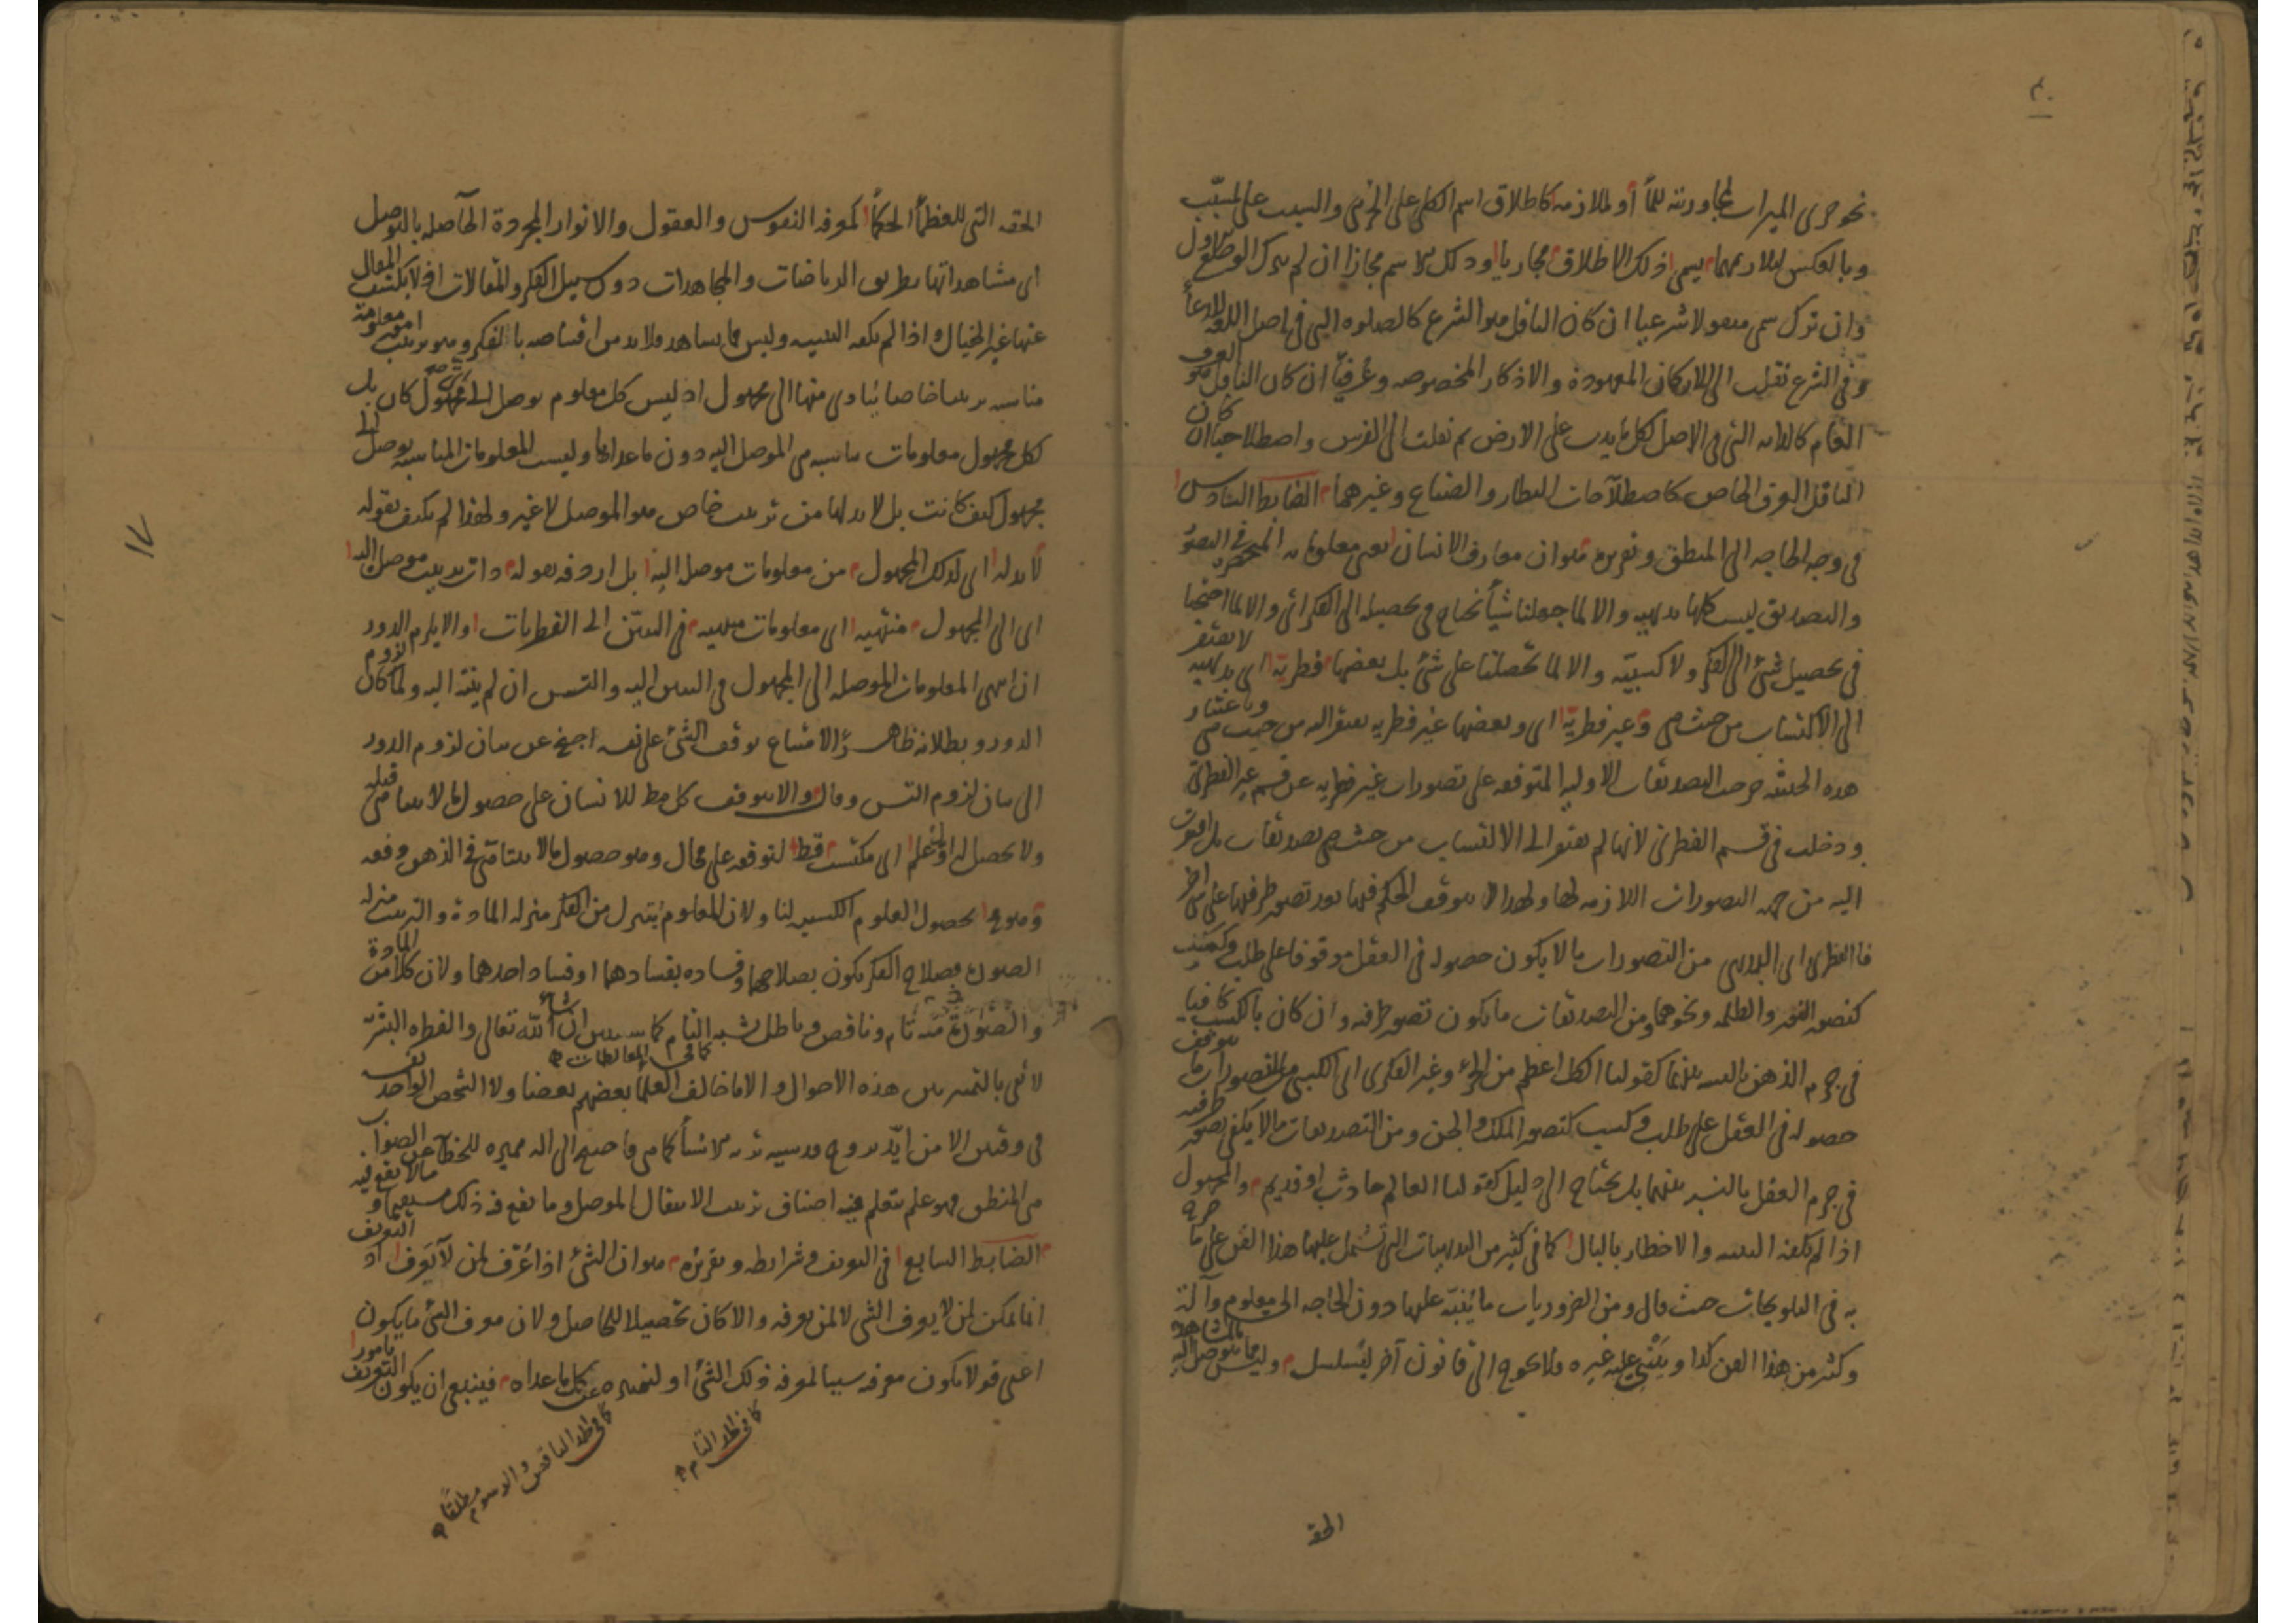 نحو جرى الميزاب لمجاورته للماء أو لملازمه كاطلاق اسم الكلى على الجزئى والسبب على المسبب
وبالعكس لتلازمهما يسمى ذلك الاطلاق مجازيا وذلك الاسم مجازا ان لم يترك الوضع الاول
وان ترك سمى منقولا شرعيا ان كان الناقل هو الشرع كالصلوه التى فى اصل اللغة للدعاء
وفى الشرع نقلت الى الاركان المعهودة والاذكار المخصوصه وعُرفيّا ان كان الناقل هو العرف
العام كالدابه التى فى الاصل لكل ما يدب على الارض ثم نقلت الى الفرس واصطلاحيّا ان كان
الناقل العرف الخاص كاصطلاحات النظار والصناع وغيرهما الضابط السادس
فى وجه الحاجه الى المنطق وتقريره هو ان معارف الانسان اعنى معلوماته المنحصرة فى التصور
والتصديق ليست كلها بديهيه والا لما جهلنا شيأ نحتاج فى تحصيله الى الفكر اى والا لما احتجنا
فى تحصيل شئ الى الفكر ولا كسبيّه والا لما تحصلنا على شئ بل بعضها فطرية اى بديهيه لا يفتقر
الى الاكتساب من حيث هى وغير فطرية اى وبعضها غير فطريه يفتقر اليه من حيث هى وباعتبار
هذه الحيثيه خرجت التصديقات الأوليه المتوقفه على تصورات غير فطريه عن قسم غير الفطرى
ودخلت فى قسم الفطرى لانها لم يفتقر الى الاكتساب من حيث هى تصديقات بل افتقرت
اليه من جهه التصورات اللازمه لها ولهذا لا يتوقف الحكم فيها بعد تصور طرفيها على شئ اخر
فالفطرى اى البديهى من التصورات ما لا يكون حصوله فى العقل موقوفا على طلب وكسب
كتصور النور والظلمه ونحوهما ومن التصديقات ما يكون تصور طرفيه وان كان بالكسب كافيا
فى جزم الذهن بالنسبه بينهما كقولنا الكل اعظم من الجزء وغير الفكرى اى الكسبى من التصورات ما يتوقف
حصوله فى العقل على طلب وكسب كتصور الملك والجن ومن التصديقات ما لا يكفى تصور طرفيه
فى جزم العقل بالنسبه بينهما بل يحتاج الى دليل كقولنا العالم حادث او قديم والمجهول
اذا لم يكفه التنبيه والاخطار بالبال كما فى كثير من البديهيات التى تشتمل عليها هذا الفن على ما صرح
به فى التلويحات حيث قال ومن الضروريات ما يُنبّه عليها دون الحاجه الى معلوم وآلة
وكثير من هذا الفن كذا ويَبْتَنِى عليه غيره فلا يحوج الى قانون آخر ليتسلسل وليس مما يتوصل اليه بالمشاهدة
الحقه
الحقه التى للعظماء الحكماء كمعرفه النفوس والعقول والانوار المجردة الحاصله بالتوصل
الى مشاهداتها بطريق الرياضات والمجاهدات دون سبيل الفكر والمقالات اذ لا يكتسب المقال
عنها غير الخيال واذا لم يكفه التنبيه وليس مما يشاهد فلا بد من اقتناصه بالفكر وهو ترتيب امور معلومة
مناسبه ترتيبا خاصا يتأدى منها الى مجهول اذ ليس كل معلوم يوصل الى اى مجهول كان بل
لكل مجهول معلومات مناسبه هى الموصل اليه دون ما عداها وليست المعلومات المناسبه يوصل الى
مجهول كيف كانت بل لا بد لها من ترتيب خاص هو الموصل لا غير ولهذا لم يكتف بقوله
لا بد له اى لذلك المجهول من معلومات موصله اليه بل اردفه بقوله ذات ترتيب موصل اليه
اى الى المجهول منتهيه اى معلومات منتهيه فى التبيّن الى الفطريات او الا يلزم الدور
ان انتهى المعلومات الموصله الى المجهول فى التبين اليه والتسلسل ان لم ينته اليه ولما كان لزوم
الدور وبطلانه ظاهرا لامتناع توقف الشئ على نفسه اعرض عن بيان لزوم الدور
الى بيان لزوم التس وقال والا يتوقف كل مطلوب للانسان على حصول ما لا يتناهى قبله
ولا يحصل له اوّل علم اى مكتسب قط لتوقفه على محال وهو حصول ما لا يتناهى فى الذهن دفعه
وهو محال لحصول العلوم الكسبيه لنا ولان المعلوم يتنزل من الفكر منزله المادة والترتيب منزله
الصوره فصلاح الفكر يكون بصلاحهما وفساده بفسادهما او فساد احدهما ولان كلا من المادة
والصوره منه تام وناقص وباطل يشبه التام كما سيتبين ان شاء الله تعالى والفطره البشرية
كما فى المغالطات
لا تفى بالتمييز بين هذه الاحوال والا لما خالف العلماء بعضهم بعضا ولا الشخص الواحد نفسه
فى وقتين الا من ايّد بروح قدسيه تريه الاشيأ كما هى فاحتيج الى اله مميزه للخطأ عن الصواب
هى المنطق فهو علم يتعلم فيه اصناف ترتيب الانتقال الموصل وما يقع فيه ذلك مستقيما وما لا يقع فيه
الضابط السابع فى التعريف وشرائطه وتقريره هو ان الشئ اذا عُرّف لمن لا يعرف اذ التعريف
انما يمكن لمن لا يعرف الشئ لا لمن يعرفه والا كان تحصيلا للحاصل ولان معرف الشئ ما يكون
اعنى قولا يكون معرفه سببا لمعرفه ذلك الشئ او لتميزه عن كل ما عداه فينبغى ان يكون التعريف بامور
كما فى الحد التام
كما فى الحد الناقص والرسوم مطلقا